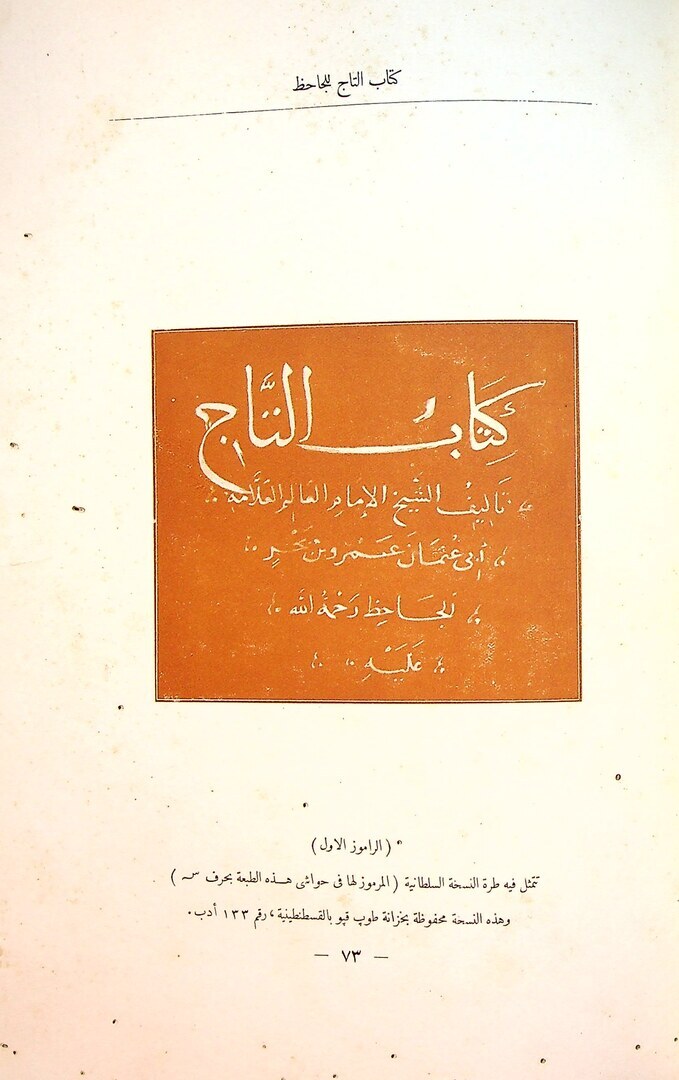 كتاب التاج للجاحظ
كِتَابُ التَّاج
تَاليفُ الشَّيخ الإمَامِ العَالِم العَلَّامَة
أبى عُثمَانَ عَمْرو بن بَحْرٍ
الجَاحِظِ رَحْمَةُ الله
عَلَيْهِ
( الراموز الاول )
تتمثل فيه طرة النسخة السلطانية ( المرموز لها فى حواشى هذه الطبعة بحرف سـ )
وهذه النسخة محفوظة بخزانة طوپ قپو بالقسطنطينية، رقم ١٣٣ أدب.
— ٧٣ —